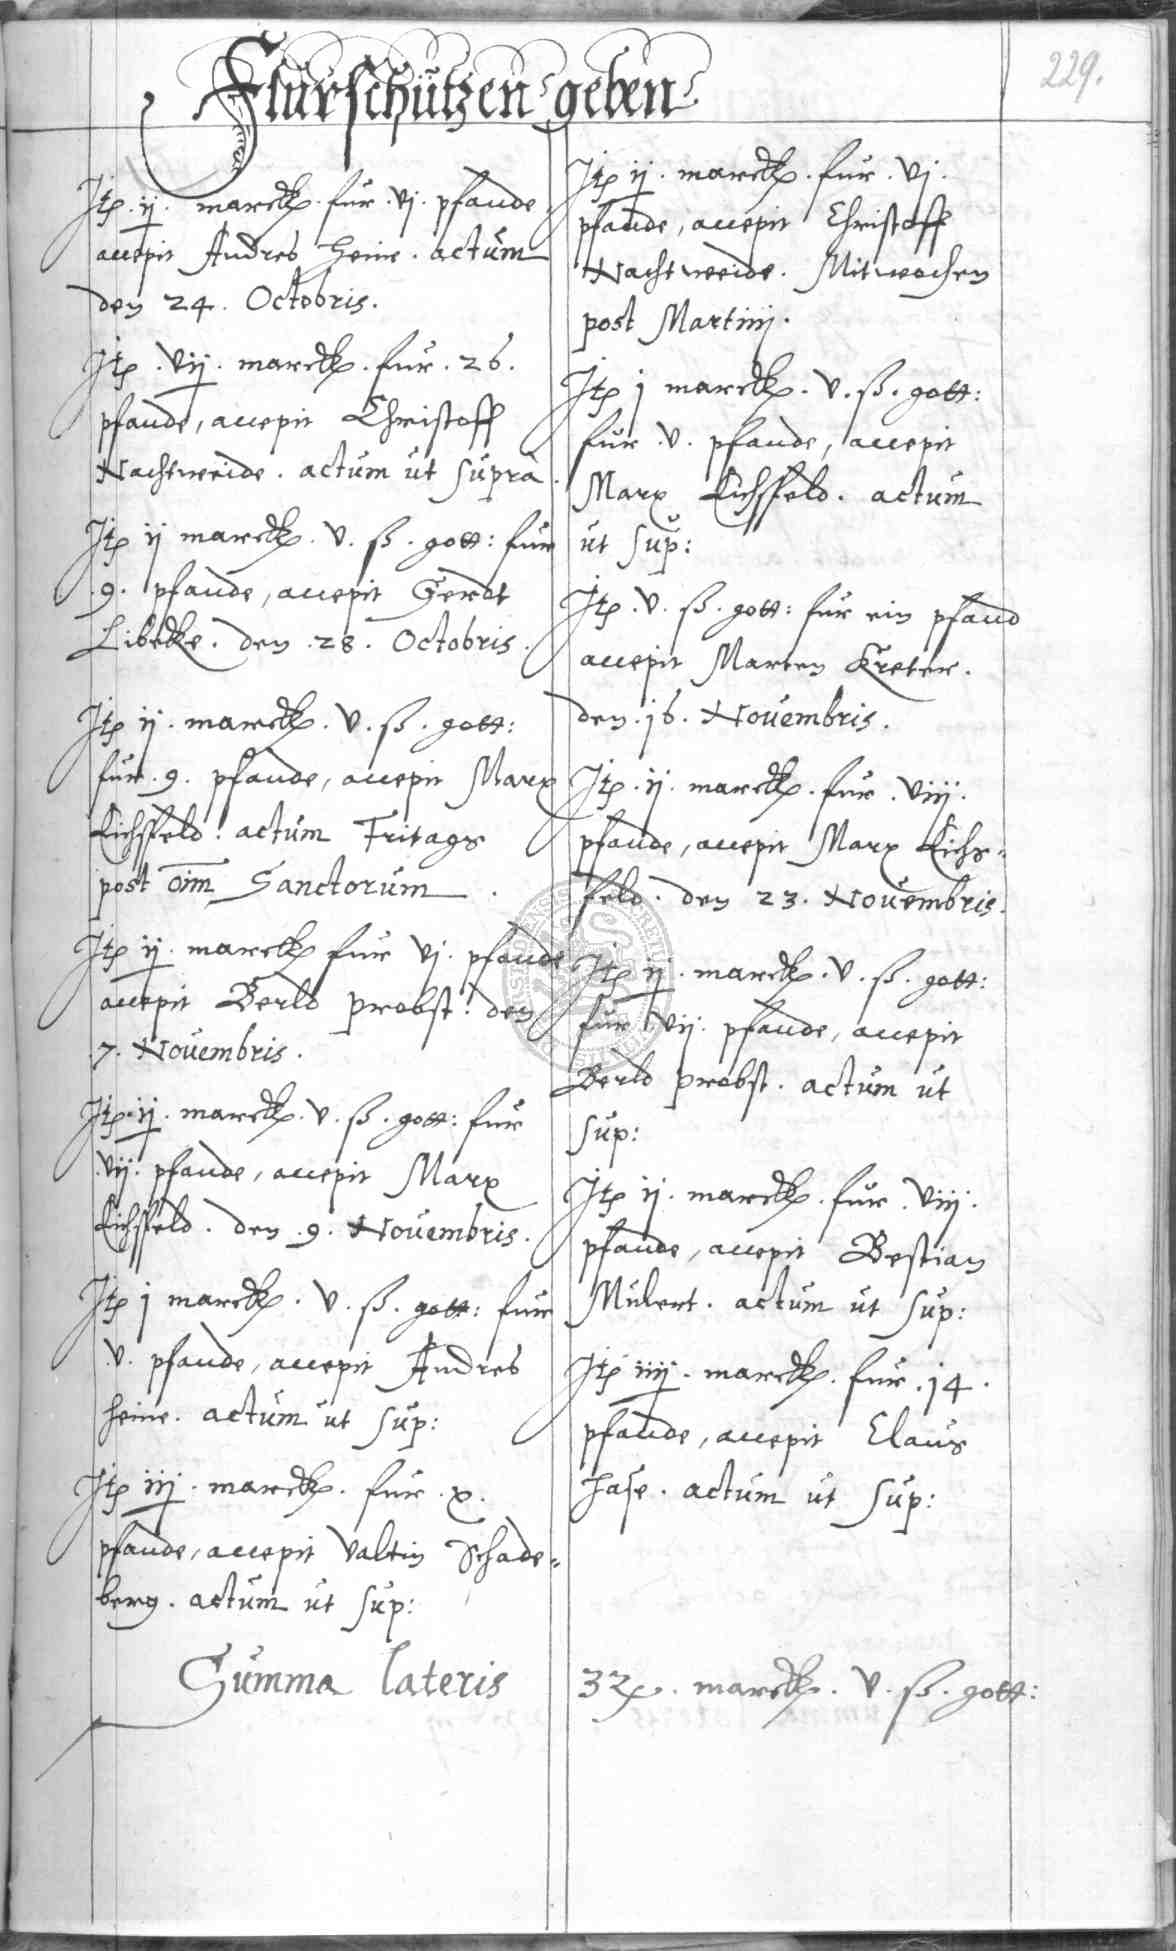 229.
Flurschützen geben
Itp .ij. marck. fur .vj. pfande
accepit Andres Heine. actum
den 24. Octobris.
Itp .vij. marck. fur .26.
pfande, accepit Christoff
Nachtweide. actum ut supra.
Itp ij marck. v. ß. gott: fur
.9. pfande, accepit Gerdt
Libecke. den .28. Octobris.
Itp ij. marck. v. ß. gott:
fur .9. pfande, accepit Marx
Eichsfeld. actum Fritags
post oim Sanctorum.
Itp ij. marck fur vj. pfande
accepit Berld Probst. den
.7. Novembris.
Itp .ij. marck. v. ß. gott: fur
.vij. pfande, accepit Marx
Eichsfeld. den .9. Novembris.
Itp j marck. v. ß. gott: fur
.v. pfande, accepit Andres
Heine. actum ut sup:
Itp iij. marck. fur .x.
pfande, accepit Valtin Schade=
berg. actum ut sup:
Itp ij. marck. fur .vj.
pfande, accepit Christoff
Nachtweide. Mitwochen
post Martinj.
Itp j marck. v. ß. gott:
fur .v. pfande, accepit
Marx Eichsfeld. actum
ut sup:
Itp .v. ß. gott: fur ein pfand
accepit Marten Kreter.
den .16. Novembris.
Itp .ij. marck. fur .viij.
pfande, accepit Marx Eichs=
feld. den 23. Novembris.
Itp ij. marck. v. ß. gott:
fur vij. pfande, accepit
Berld Probst. actum ut
sup:
Itp ij. marck. fur .viij.
pfande, accepit Bestian
Mulert. actum ut sup:
Itp iiij. marck. fur .14.
pfande, accepit Claus
Hase. actum ut sup:
Summa lateris marck. v. ß. gott: